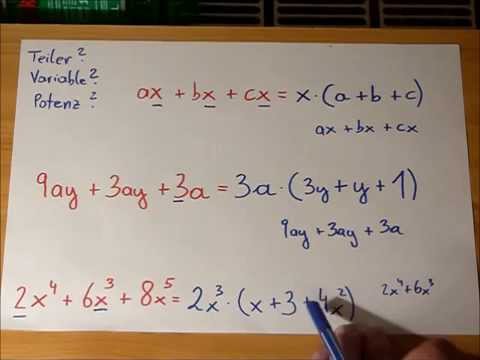 Teiler?
Variable?
Potenz?
ax + bx + cx = x · (a + b + c)
ax + bx + cx
9ay + 3ay + 3a = 3a · (3y + y + 1)
9ay + 3ay + 3a
2x⁴ + 6x³ + 8x⁵ = 2x³ · (x + 3 + 4x²)
2x⁴ + 6x³